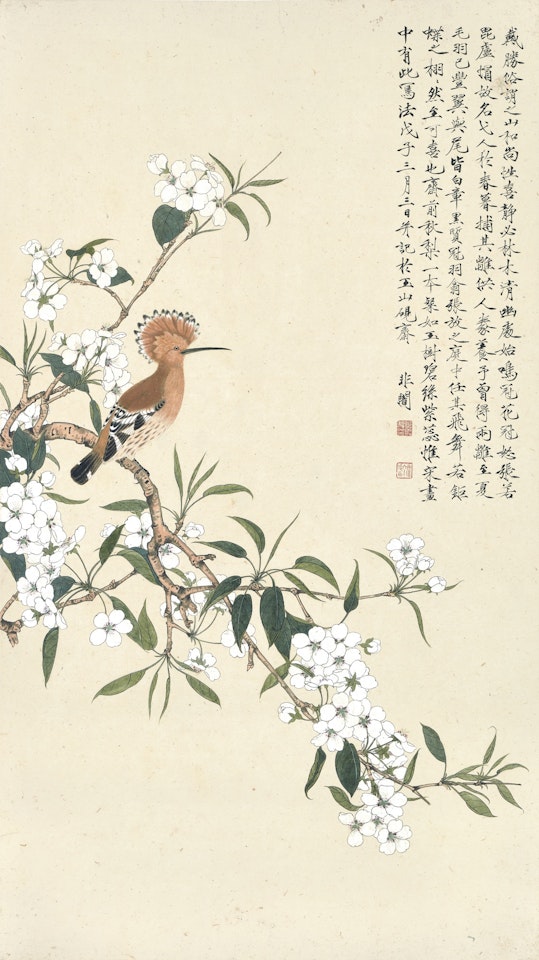 戴勝俗謂之山和尚性喜靜必林木清幽處始鳴冠花冠怒張若
毘盧帽故名弋人於春暮捕其雛供人豢養予曾得兩雛至夏
毛羽已豐翼與尾皆白章黑質冠羽翕張放之庭中任其飛舞若鉅
蝶之栩栩然至可喜也齋前秋梨一本粲如玉樹碧綠紫蕊惟宋畫
中有此寫法戊子三月三日并記於玉山硯齋
非闇